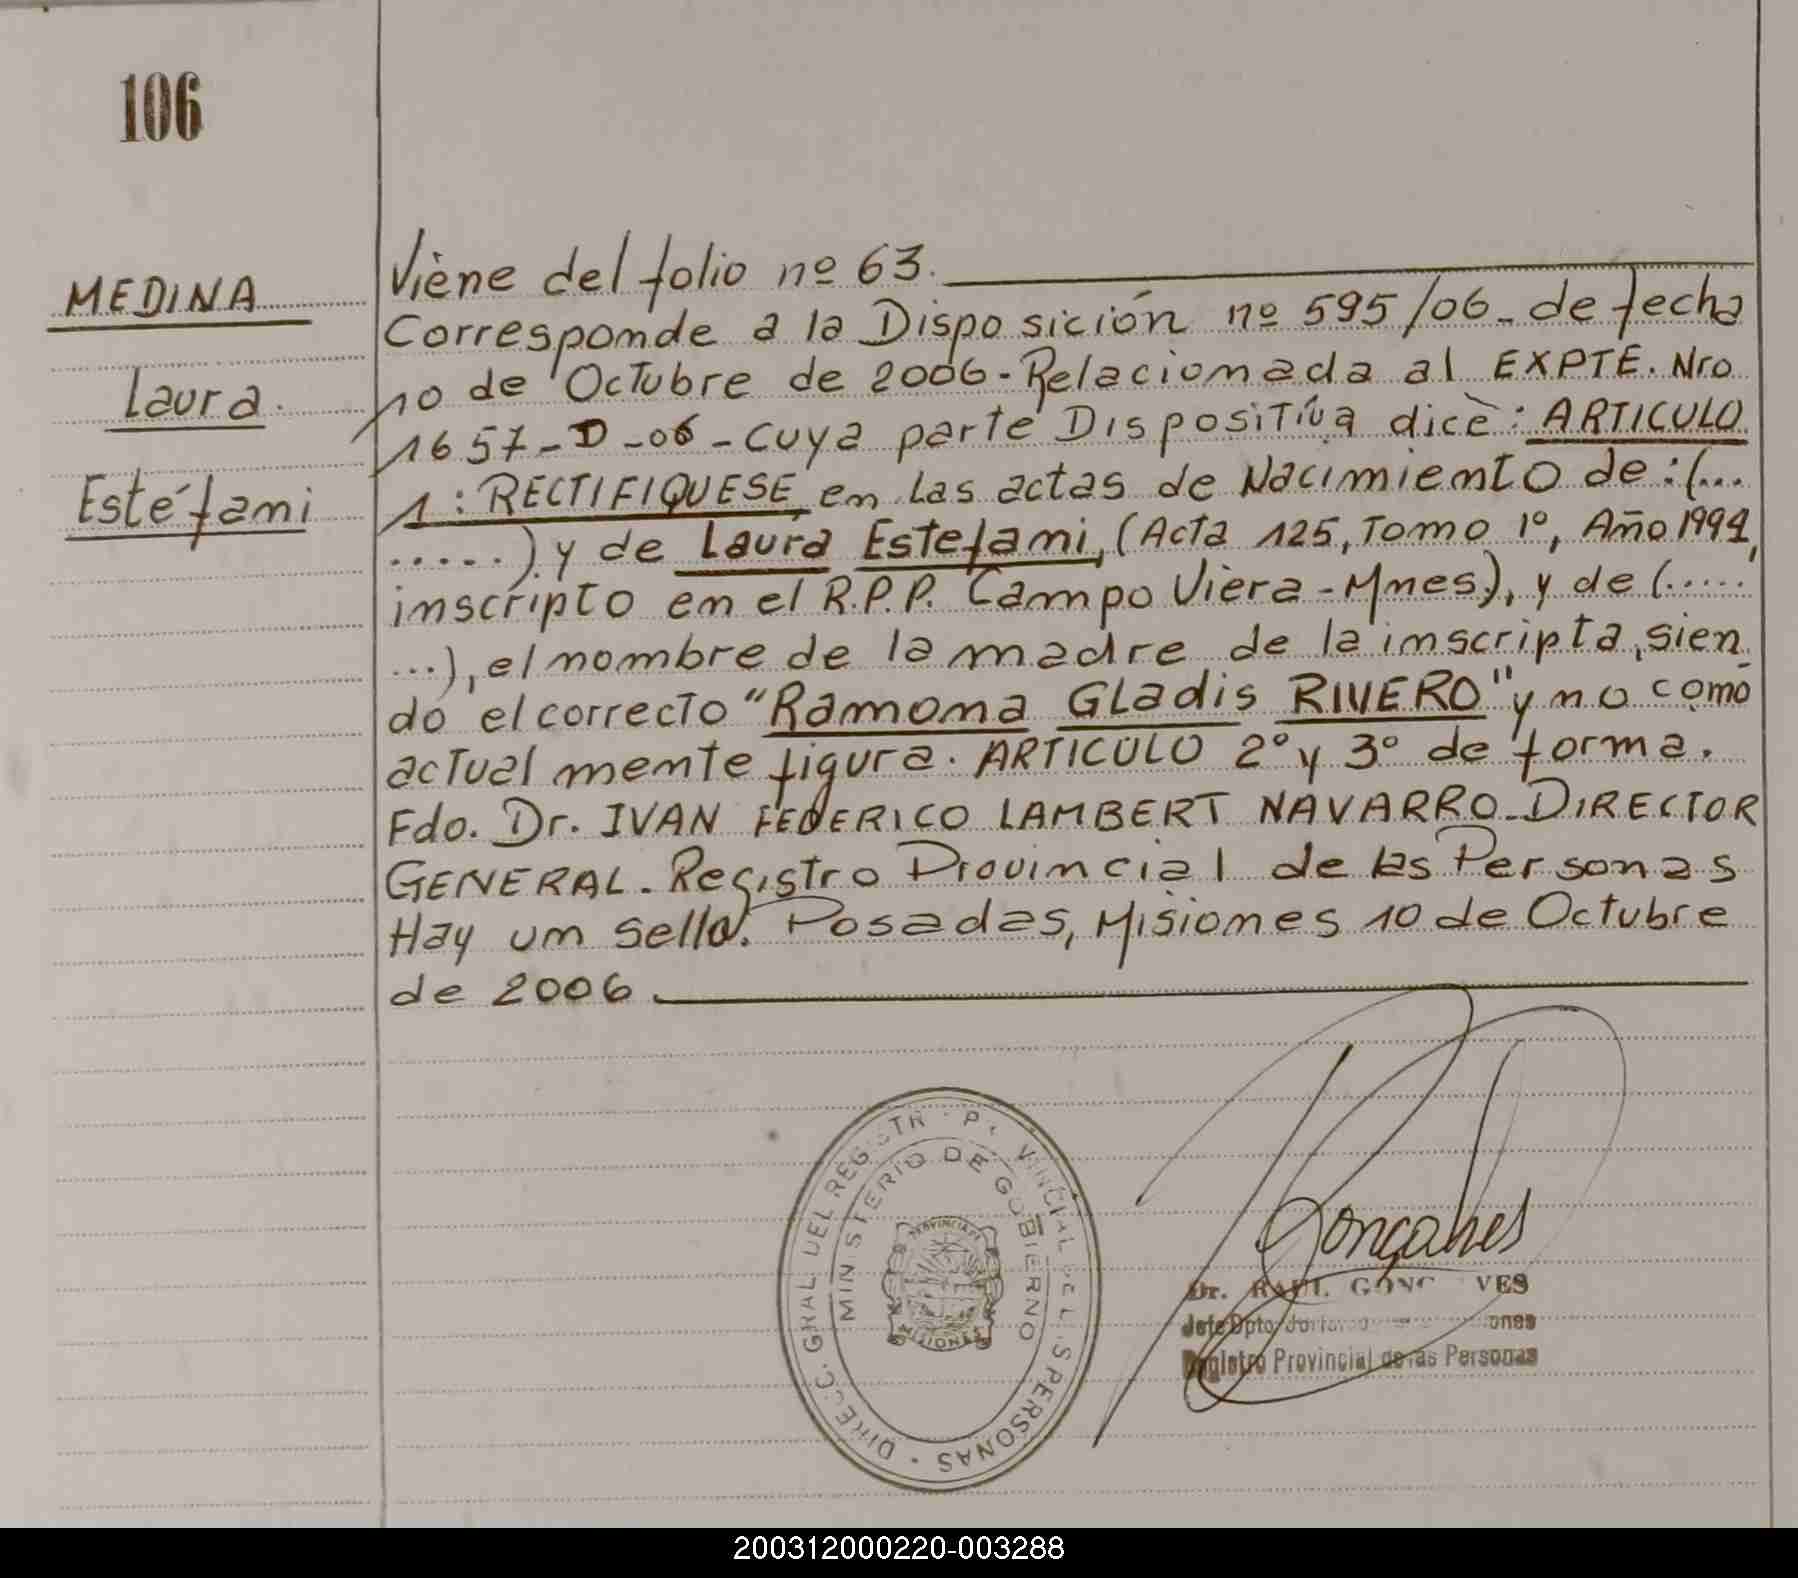 106
MEDINA
Laura.
Estéfani
Viene del folio nº 63.
Corresponde a la Disposición nº 595/06- de fecha
10 de Octubre de 2006- Relacionada al EXPTE. Nro
1657-D-06- cuya parte Dispositiva dice: ARTICULO
1: RECTIFIQUESE en las actas de Nacimiento de: (...
.....) y de Laura Estefani, (Acta 125, Tomo 1º, Año 1994,
inscripto en el R.P.P. Campo Viera - Mnes), y de (.....
...), el nombre de la madre de la inscripta, sien
do el correcto "Ramona Gladis RIVERO" y no como
actualmente figura. ARTICULO 2º y 3º de forma.
Fdo. Dr. IVAN FEDERICO LAMBERT NAVARRO- DIRECTOR
GENERAL. Registro Provincial de las Personas
Hay un sello. Posadas, Misiones 10 de Octubre
de 2006
DIRECC. GRAL DEL REGISTR PR VINCIAL DE L S PERSONAS
MINISTERIO DE GOBIERNO
PROVINCIA
MISIONES
Gonçalves
Dr. RAUL GONC VES
Jefe Dpto. ones
Registro Provincial de las Personas
200312000220-003288